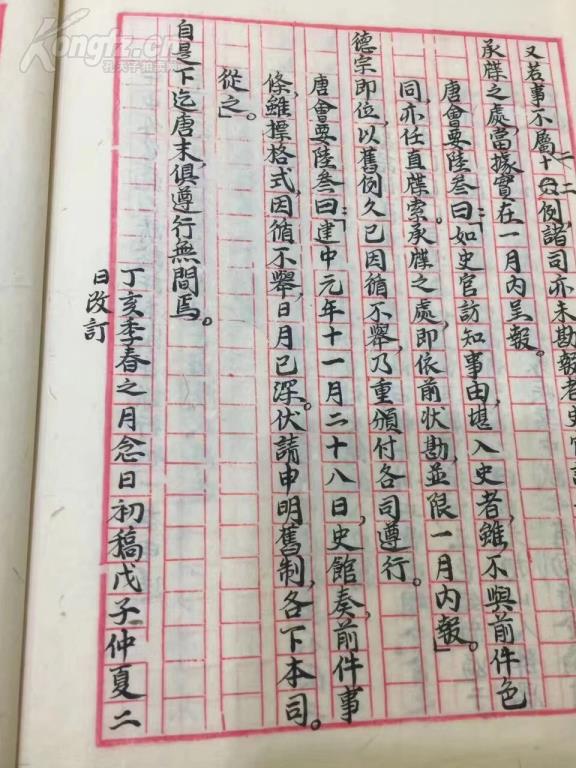 又若事不屬十二例,諸司亦未勘報者史官訪
承牒之處,當據實在一月內呈報。
唐會要陸叁曰:「如史官訪知事由,堪入史者,雖不與前件色
同,亦任直牒索。承牒之處,即依前狀勘,並限一月內報」。
德宗即位,以舊例久已因循不舉,乃重頒付各司遵行。
唐會要陸叁曰:「建中元年十一月二十八日,史館奏,前件事
條,雖標格式,因循不舉,日月已深。伏請申明舊制,各下本司。
從之」。
自是下迄唐末,俱遵行無間焉。
丁亥季春之月念日初稿戊子仲夏二
日改訂
Kongfz.cn
孔夫子拍卖网